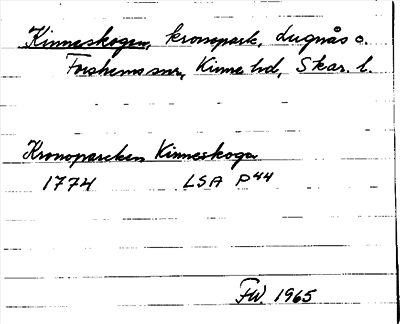 Kinneskogen, kronopark, Lugnås o.
Forshems snr, Kinne hd, Skar. l.
Kronoparcken Kinneskoga
1774 LSA P44
FW. 1965